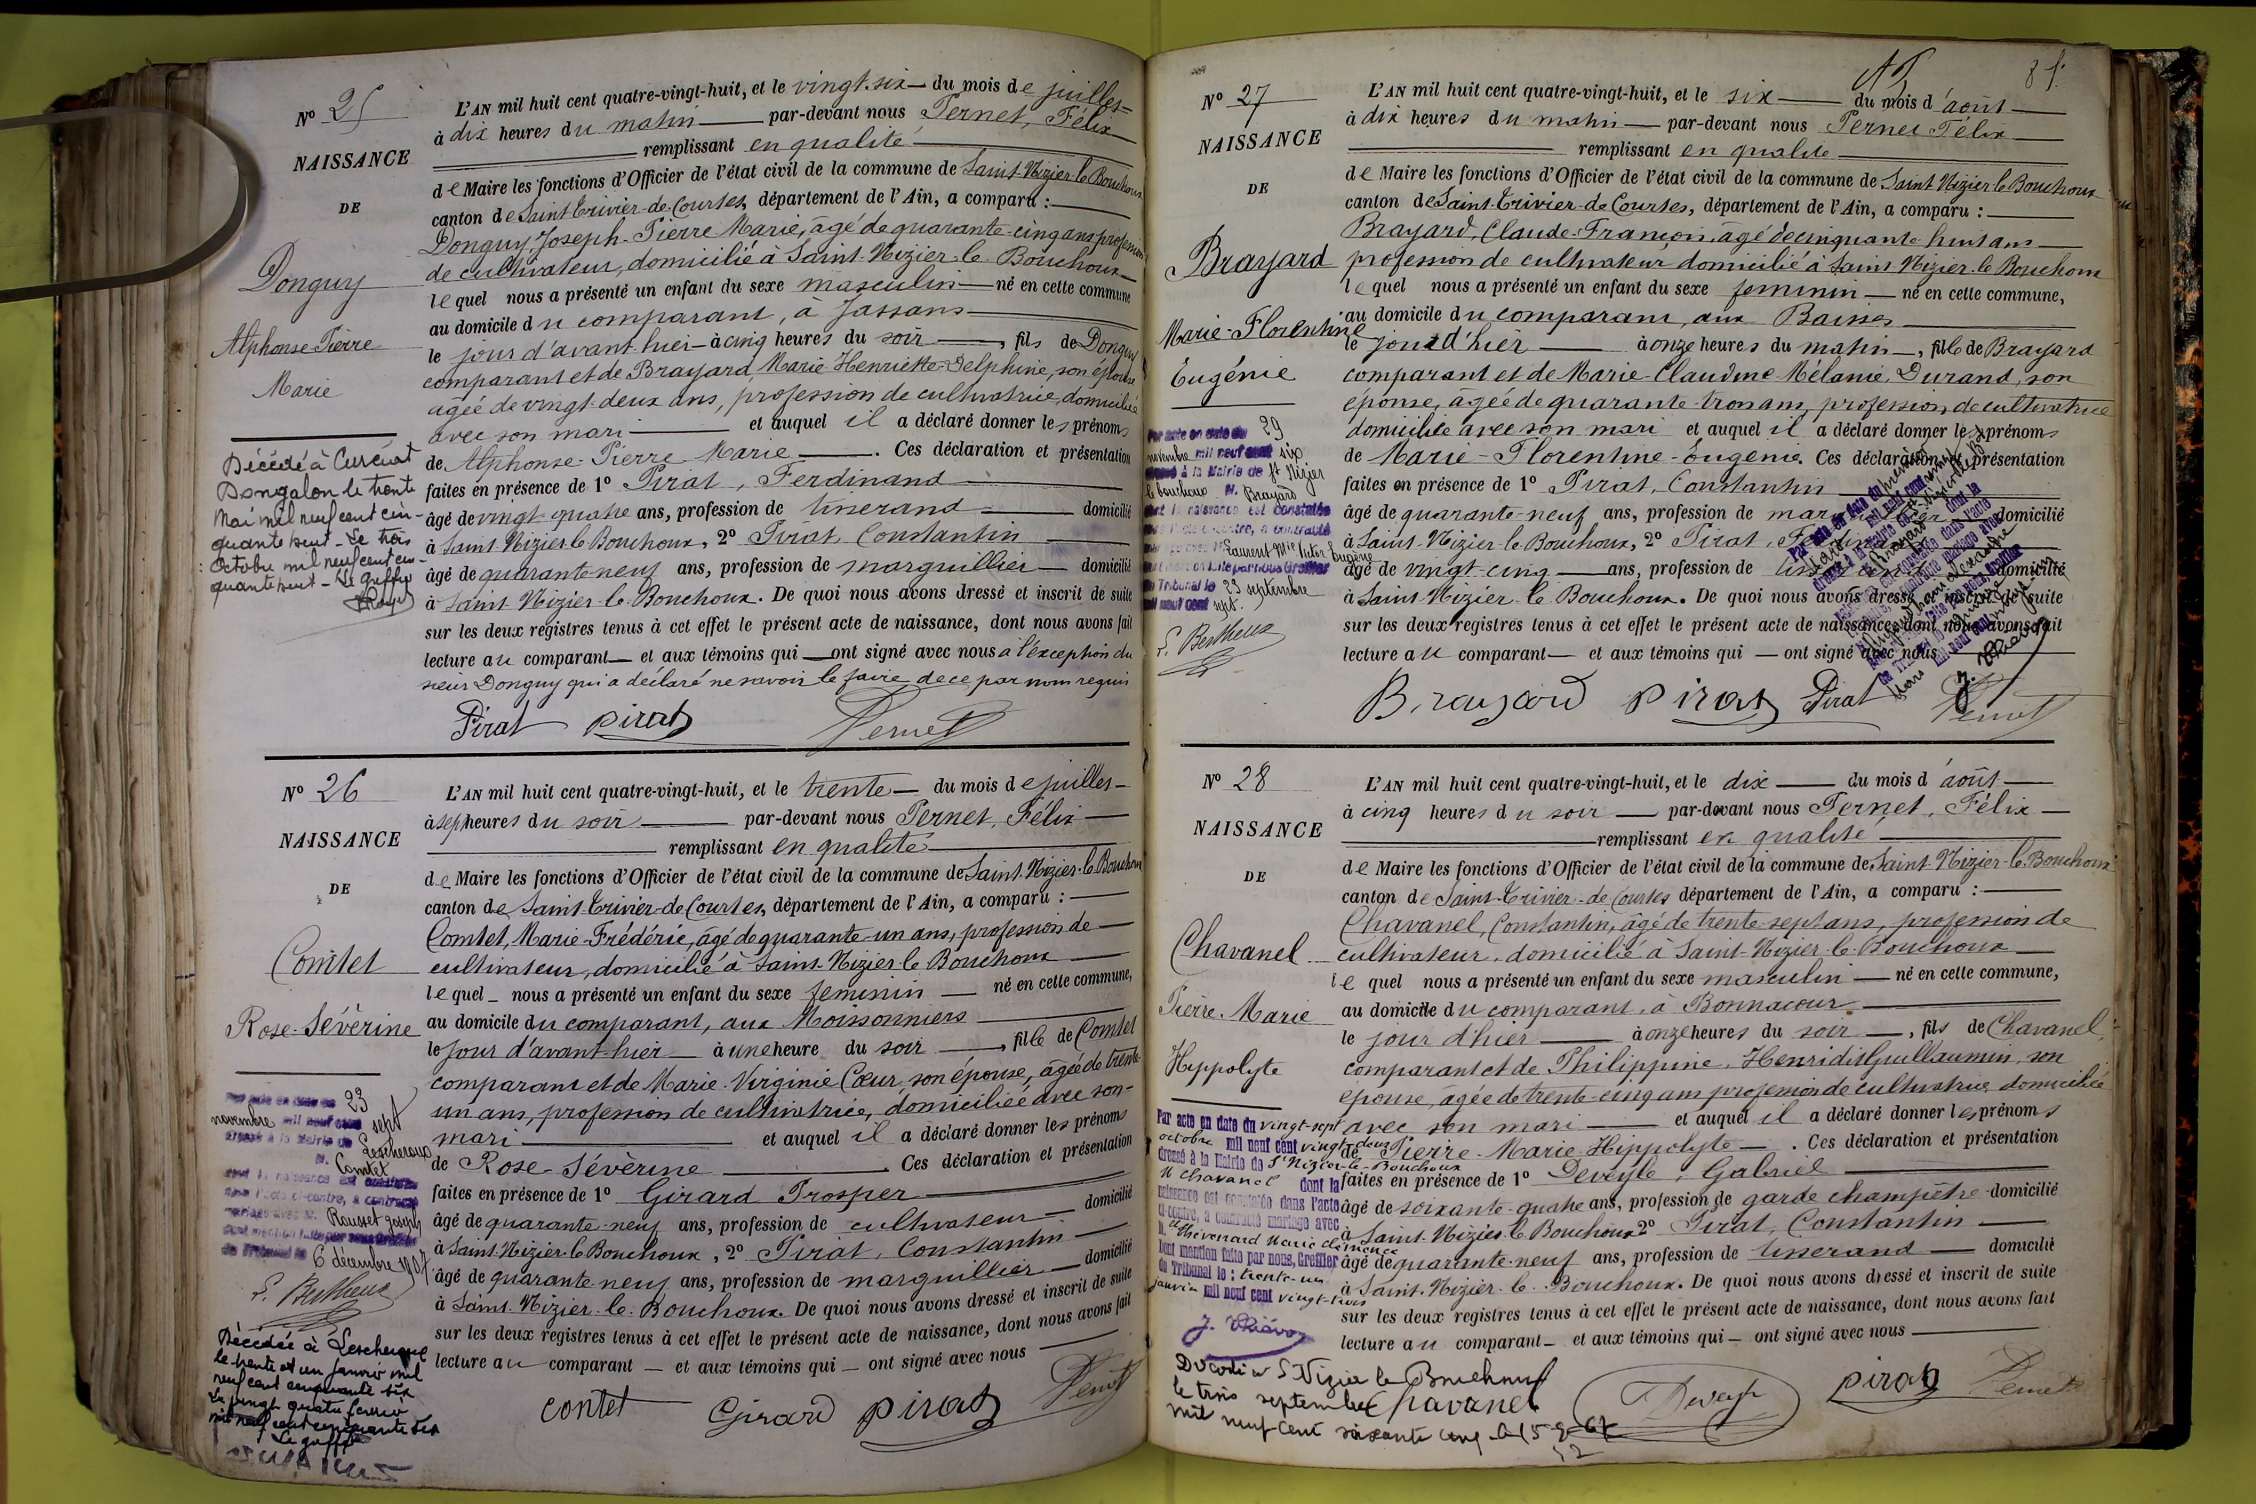 N° 25
NAISSANCE
DE
Donguy
Alphonse Pierre
Marie
Décédé à Curciat
Dongalon le trente
Mai mil neuf cent cin-
quante huit - Le trois
Octobre mil neuf cent cin-
quante huit - Le greffier
L'AN mil huit cent quatre-vingt-huit, et le vingt-six du mois de juillet
à dix heures du matin par-devant nous Pernet, Félix
remplissant en qualité
de Maire les fonctions d'Officier de l'état civil de la commune de Saint-Nizier-le-Bouchoux
canton de Saint-Trivier-de-Courtes, département de l'Ain, a comparu :
Donguy, Joseph-Pierre Marie, âgé de quarante-cinq ans, profession
de cultivateur, domicilié à Saint-Nizier-le-Bouchoux
lequel nous a présenté un enfant du sexe masculin né en cette commune
au domicile du comparant, à Jassans
le jour d'avant-hier à cinq heures du soir, fils de Donguy
comparant et de Brayard, Marie-Henriette-Delphine, son épouse
âgée de vingt-deux ans, profession de cultivatrice, domiciliée
avec son mari et auquel il a déclaré donner les prénoms
de Alphonse-Pierre Marie. Ces déclaration et présentation
faites en présence de 1° Pirat, Ferdinand
âgé de vingt-quatre ans, profession de tisserand domicilié
à Saint-Nizier-le-Bouchoux, 2° Pirat, Constantin
âgé de quarante-neuf ans, profession de marguillier domicilié
à Saint-Nizier-le-Bouchoux. De quoi nous avons dressé et inscrit de suite
sur les deux registres tenus à cet effet le présent acte de naissance, dont nous avons fait
lecture au comparant et aux témoins qui ont signé avec nous à l'exception du
sieur Donguy qui a déclaré ne savoir le faire, de ce par nous requis
Pirat pirat Pernet
N° 26
NAISSANCE
DE
Comtet
Rose-Sévérine
Par acte en date du 23
novembre mil neuf cent sept
dressé à la Mairie de Lescheroux
M. Comtet
dont la naissance est constatée
dans l'acte ci-contre, a contracté
mariage avec M. Rousset Joseph
dont mention faite par nous Greffier
du Tribunal le 6 décembre 1907.
L. Bertheux
Décédée à Lescheroux
le trente et un janvier mil
neuf cent cinquante six
Le vingt quatre février
mil neuf cent cinquante six
Le greffier
L'AN mil huit cent quatre-vingt-huit, et le trente du mois de juillet
à sept heures du soir par-devant nous Pernet, Félix
remplissant en qualité
de Maire les fonctions d'Officier de l'état civil de la commune de Saint-Nizier-le-Bouchoux
canton de Saint-Trivier-de-Courtes, département de l'Ain, a comparu :
Comtet, Marie-Frédéric, âgé de quarante-un ans, profession de
cultivateur, domicilié à Saint-Nizier-le-Bouchoux
lequel nous a présenté un enfant du sexe féminin né en cette commune,
au domicile du comparant, aux Moissonniers
le jour d'avant-hier à une heure du soir, fille de Comtet
comparant et de Marie-Virginie Cœur, son épouse, âgée de trente-
un ans, profession de cultivatrice, domiciliée avec son
mari et auquel il a déclaré donner les prénoms
de Rose-Sévérine. Ces déclaration et présentation
faites en présence de 1° Girard Prosper
âgé de quarante-neuf ans, profession de cultivateur domicilié
à Saint-Nizier-le-Bouchoux, 2° Pirat, Constantin
âgé de quarante-neuf ans, profession de marguillier domicilié
à Saint-Nizier-le-Bouchoux. De quoi nous avons dressé et inscrit de suite
sur les deux registres tenus à cet effet le présent acte de naissance, dont nous avons fait
lecture au comparant et aux témoins qui ont signé avec nous
contet Girard pirat Pernet
N° 27
NAISSANCE
DE
Brayard
Marie-Florentine
Eugénie
Par acte en date du 29
novembre mil neuf cent six
dressé à la Mairie de St Nizier
le bouchoux M. Brayard
dont la naissance est constatée
dans l'acte ci-contre, a contracté
mariage avec M. Laurent Mie Victor Eugène
dont mention faite par nous Greffier
du Tribunal le 23 septembre
mil neuf cent sept.
L. Bertheux
L'AN mil huit cent quatre-vingt-huit, et le six du mois d'août
à dix heures du matin par-devant nous Pernet Félix
remplissant en qualité
de Maire les fonctions d'Officier de l'état civil de la commune de Saint Nizier le Bouchoux
canton de Saint-Trivier-de-Courtes, département de l'Ain, a comparu :
Brayard, Claude-François, âgé de cinquante-huit ans
profession de cultivateur domicilié à Saint Nizier-le Bouchoux
lequel nous a présenté un enfant du sexe féminin né en cette commune,
au domicile du comparant, aux Baisses
le jour d'hier à onze heures du matin, fille de Brayard
comparant et de Marie-Claudine-Mélanie Durand, son
épouse, âgée de quarante-trois ans, profession de cultivatrice
domiciliée avec son mari et auquel il a déclaré donner les prénoms
de Marie-Florentine-Eugénie. Ces déclaration et présentation
faites en présence de 1° Pirat, Constantin
âgé de quarante-neuf ans, profession de marguillier domicilié
à Saint-Nizier-le-Bouchoux, 2° Pirat, Ferdinand
âgé de vingt-cinq ans, profession de tisserand domicilié
à Saint-Nizier-le-Bouchoux. De quoi nous avons dressé et inscrit de suite
sur les deux registres tenus à cet effet le présent acte de naissance, dont nous avons fait
lecture au comparant et aux témoins qui ont signé avec nous
Brayard pirat Pirat Pernet
N° 28
NAISSANCE
DE
Chavanel
Pierre-Marie
Hippolyte
Par acte en date du vingt-sept
octobre mil neuf cent vingt-deux
dressé à la Mairie de St Nizier-le-Bouchoux
M Chavanel dont la
naissance est constatée dans l'acte
ci-contre, a contracté mariage avec
M. Thévenard Marie Clémence
Dont mention faite par nous, Greffier
du Tribunal le : trente-un
janvier mil neuf cent vingt-trois
Décédé à St Nizier le Bouchoux
le trois septembre
mil neuf cent soixante cinq
L'AN mil huit cent quatre-vingt-huit, et le dix du mois d'août
à cinq heures du soir par-devant nous Pernet, Félix
remplissant en qualité
de Maire les fonctions d'Officier de l'état civil de la commune de Saint-Nizier-le-Bouchoux
canton de Saint-Trivier-de-Courtes département de l'Ain, a comparu :
Chavanel, Constantin, âgé de trente-sept ans, profession de
cultivateur, domicilié à Saint-Nizier-le-Bouchoux
lequel nous a présenté un enfant du sexe masculin né en cette commune,
au domicile du comparant, à Bonnacour
le jour d'hier à onze heures du soir, fils de Chavanel,
comparant et de Philippine, Henri dit Guillaumin, son
épouse, âgée de trente-cinq ans profession de cultivatrice domiciliée
avec son mari et auquel il a déclaré donner les prénoms
de Pierre-Marie-Hippolyte. Ces déclaration et présentation
faites en présence de 1° Deveyle, Gabriel
âgé de soixante-quatre ans, profession de garde champêtre domicilié
à Saint-Nizier-le-Bouchoux 2° Pirat, Constantin
âgé de quarante-neuf ans, profession de tisserand domicilié
à Saint-Nizier-le-Bouchoux. De quoi nous avons dressé et inscrit de suite
sur les deux registres tenus à cet effet le présent acte de naissance, dont nous avons fait
lecture au comparant et aux témoins qui ont signé avec nous
Chavanel pirat Pernet